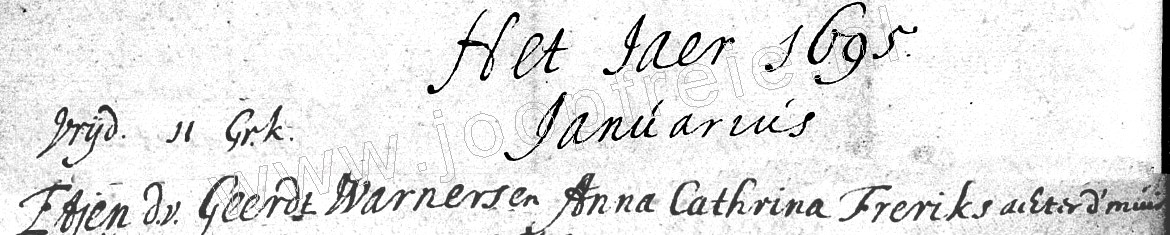 Het Jaer 1695.
Januarius
Vrijd. 11 Gr.k.
Etjen d.v. Geerdt Warnersen Anna Cathrina Freriks achter d'muir